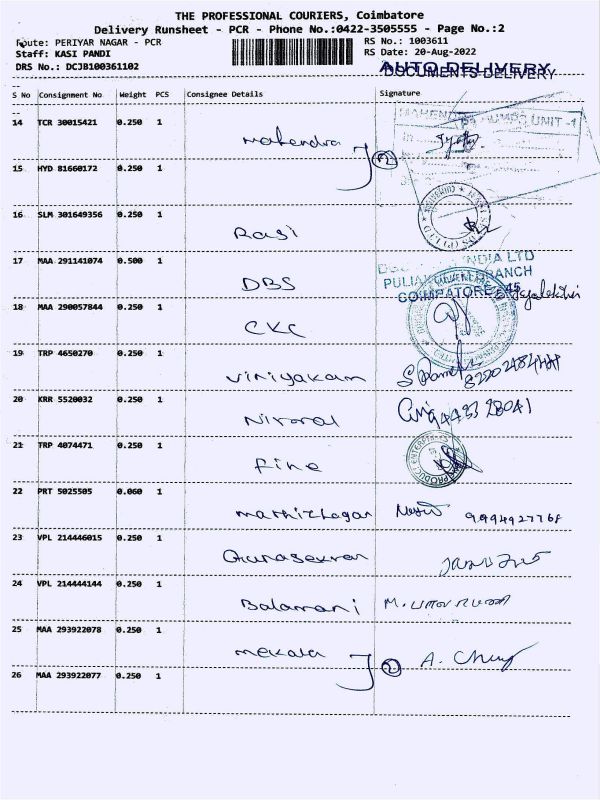 THE PROFESSIONAL COURIERS, Coimbatore
Delivery Runsheet - PCR - Phone No.:0422-3505555 - Page No.:2
Route: PERIYAR NAGAR - PCR
RS No.: 1003611
Staff: KASI PANDI
RS Date: 20-Aug-2022
DRS No.: DCJB100361102
AUTO DELIVERY
DOCUMENTS DELIVERY
S No Consignment No Weight PCS Consignee Details Signature
14 TCR 30015421 0.250 1
Mahendra 2
15 HYD 81660172 0.250 1
16 SLM 301649356 0.250 1
Rasi
17 MAA 291141074 0.500 1
INDIA LTD
DBS
BRANCH
COIMBATORE-45
18 MAA 290057844 0.250 1
CKC
19 TRP 4650270 0.250 1
Viniyakam
20 KRR 5520032 0.250 1
Nirmal
21 TRP 4074471 0.250 1
Fine
22 PRT 5025505 0.060 1
Mathizhagan 9994927768
23 VPL 214446015 0.250 1
Gunasekran
24 VPL 214444144 0.250 1
Balamani
25 MAA 293922078 0.250 1
Mekala 2
26 MAA 293922077 0.250 1